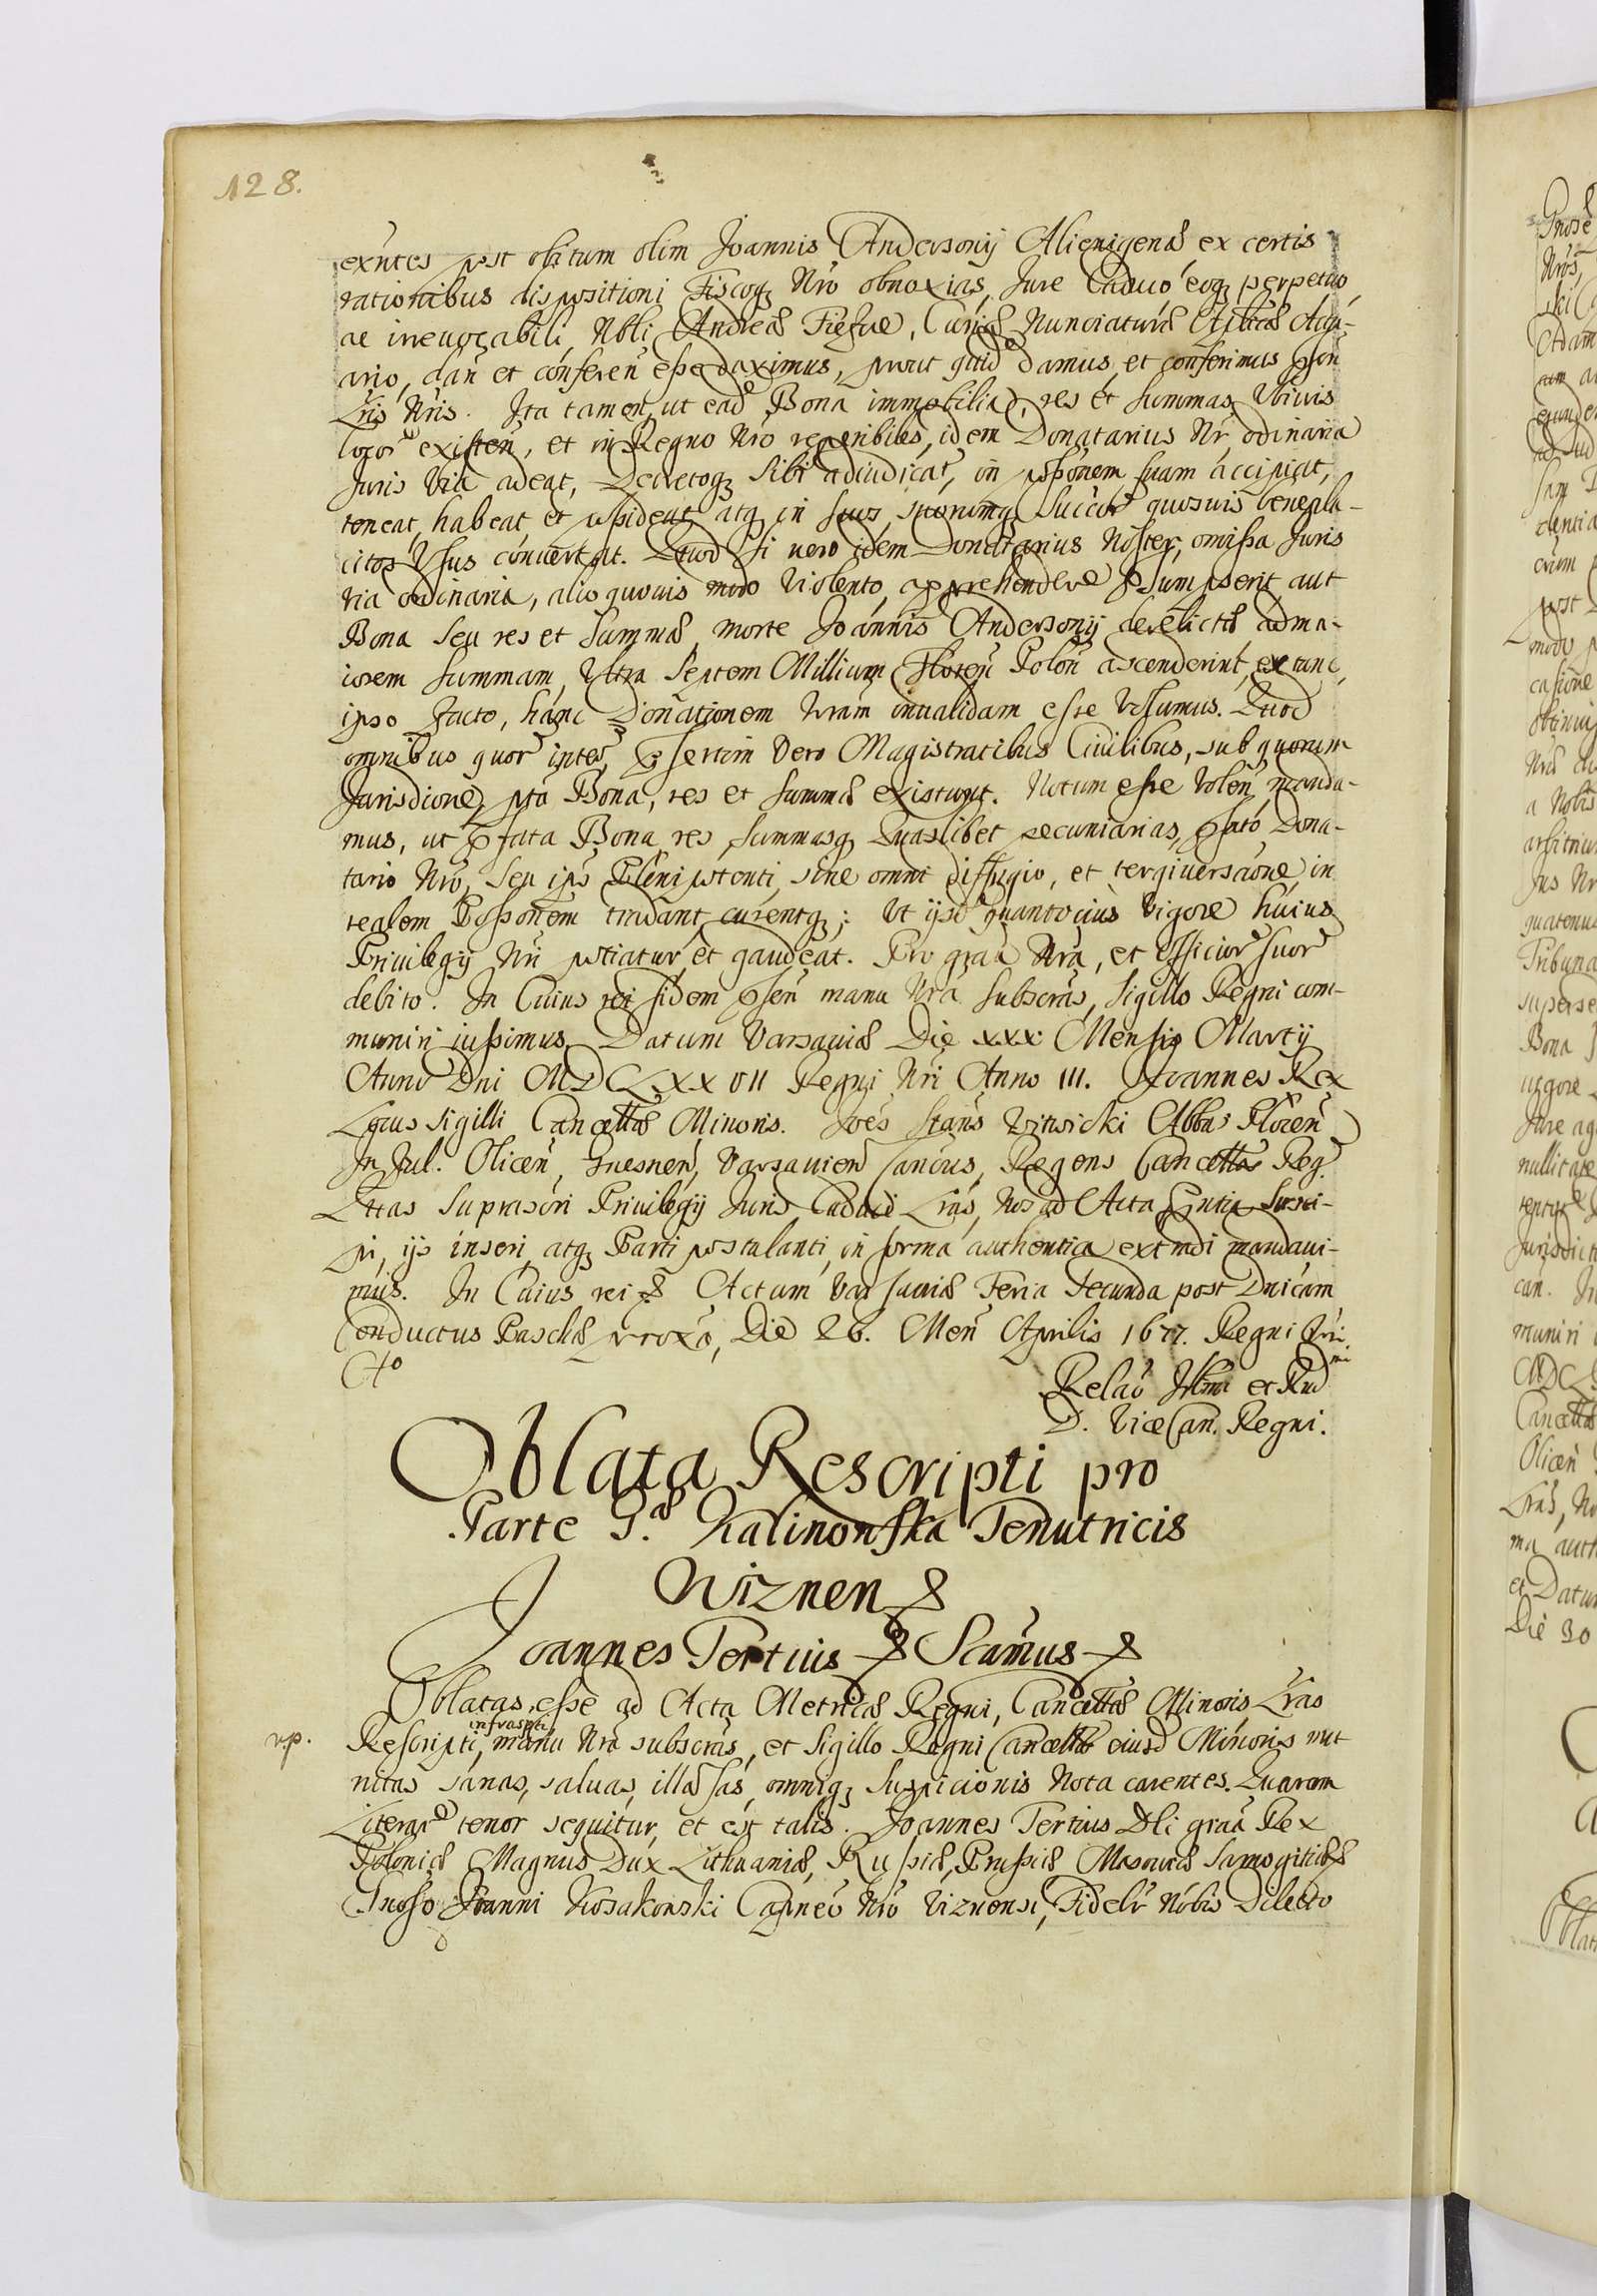 128.
exñtes post obitum olim Joannis Andersonij Alienigenæ ex certis
rationibus dispositioni Fiscoq; Nrõ obnoxias, Jure Caduco eoq; perpetuo,
ac irreuocabili, Nbli Andreæ Fiefue, Curiæ Nunciaturæ Aplicæ Actu-
ario, dan̄ et conferen̄ esse duximus, prout quid damus et conferimus p̃sen
Lr̃is Nr̃is. Ita tamen, ut ead Bona immobilia, res et summas, Vbiuis
locor existen̄, et in Regno Nrõ reperibiles, idem Donatarius Nr̃ ordinaria
Juris via adeat, Decretoq; sibi adiudicat, in p̃sse̅onem suam accipiat,
teneat, habeat et possideat, atq; in suos, suorumq; Succor quosuis benepla-
citos Vsus conuertat. Quod si uero idem Donatarius Noster, omissa Juris
via ordinaria, alio quouis modo Violento, apprehendere p̃sumpserit, aut
Bona seu res et summæ, morte Joannis Andersonij derelictæ ad ma-
iorem summam, Vltra Septem Millium Floren̄ Polon̄ ascenderint, ex tunc,
ipso facto, hanc Donationem Nram̃ inualidam esse Volumus. Quod
omnibus quor inter, p̃sertim Vero Magistratibus Ciuilibus, sub quorum
Jurisdione, p̃ta Bona, res et summæ existunt. Notum esse Volen̄, manda-
mus, ut p̃fata Bona, res, summasq; Quaslibet pecuniarias, p̃fato Dona-
tario Nrõ, seu ips Plenipotenti, sine omni diffugio, et tergiuersaõne in
realem Possoñem tradant, curentq;; Vt ijsd quantocius Vigore huius
Priuilegij Nri potiatur et gaudeat. Pro graã Nrã, et Officior suor
debito. In Cuius rei fidem p̃sen̄ manu Nrã Subscrãs, Sigillo Regni com-
muniri iussimus. Datum Varsauiæ Die xxx Mensis Martij
Anno Dni MDCLXXVII Regni Nri Anno III. Joannes Rex
Locus Sigilli Cancellæ Minoris. Joẽs Stañs Witwicki Abbas Plocen̄
In Jul. Olicen̄, Gnesnen̄, Varsauien̄ Canõus, Regens Cancellæ Reg
Quas Suprascri Priuilegij Juris Caduci Lrãs, Nos ad Acta p̃ntia susci-
pi, ijs inseri, atq; Parti postulanti, in forma authentica extradi mandaui-
mus. In Cuius rei & Actum Varsauiæ Feria Secunda post Dnicam
Conductus Paschæ proxã, Die 26. Men̄ Aprilis 1677. Regni Nri
Ao
Relaõ Illmi et Rndmi
D. ViceCan. Regni.
Oblata Rescripti pro
Parte G.æ Kalinowska Tenutricis
Wiznen &
Joannes Tertius & Scamus &
Oblatas esse ad Acta Metricæ Regni, Cancellæ Minoris, Lrãs
np. Rescripti, infrascpti manu Nrã subscrãs, et Sigillo Regni Cancellæ eiusd Minoris mu-
nitas sanas, saluas, illæsas, omniq; Suspicionis Nota carentes. Quarum
Literar tenor sequitur, et est talis. Joannes Tertius Dei graã Rex
Poloniæ Magnus Dux Lithuaniæ, Russiæ, Prussiæ Masouiæ Samogitiæ &
Gnoso Joanni Kossakowski Capneo Nrõ Viznensi, Fideli Nobis Dilecto